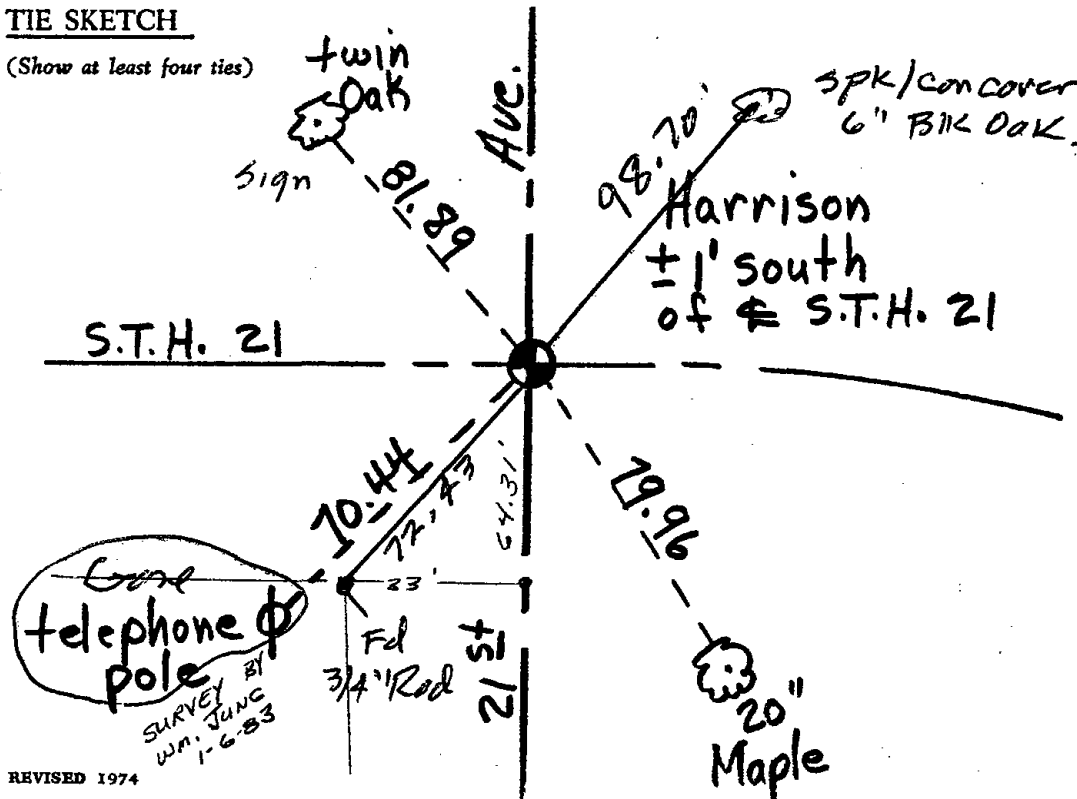 TIE SKETCH
(Show at least four ties)
twin
Oak
Sign
81.89
Ave.
98.70'
spk/con cover
6" Blk Oak.
Harrison
± 1' south
of ℄ S.T.H. 21
S.T.H. 21
70.44
72.43
64.31'
79.96
Gone
telephone
pole
33'
Fd
3/4" Rod
SURVEY BY
WM. JUNG
1-6-83
21 st
20"
Maple
REVISED 1974